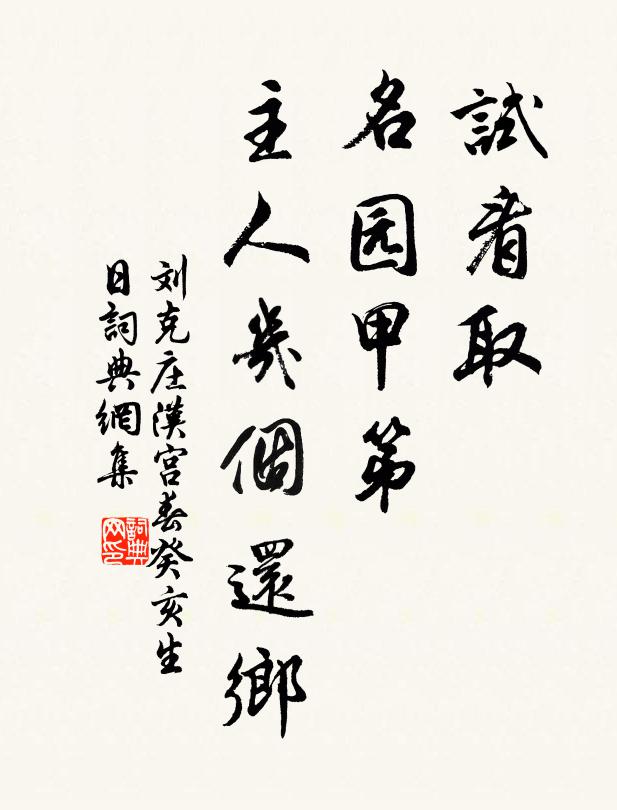 試看取
名园甲第
主人幾個還鄉
刘克庄漢宫春癸亥生
日詞典網集
詞典网印